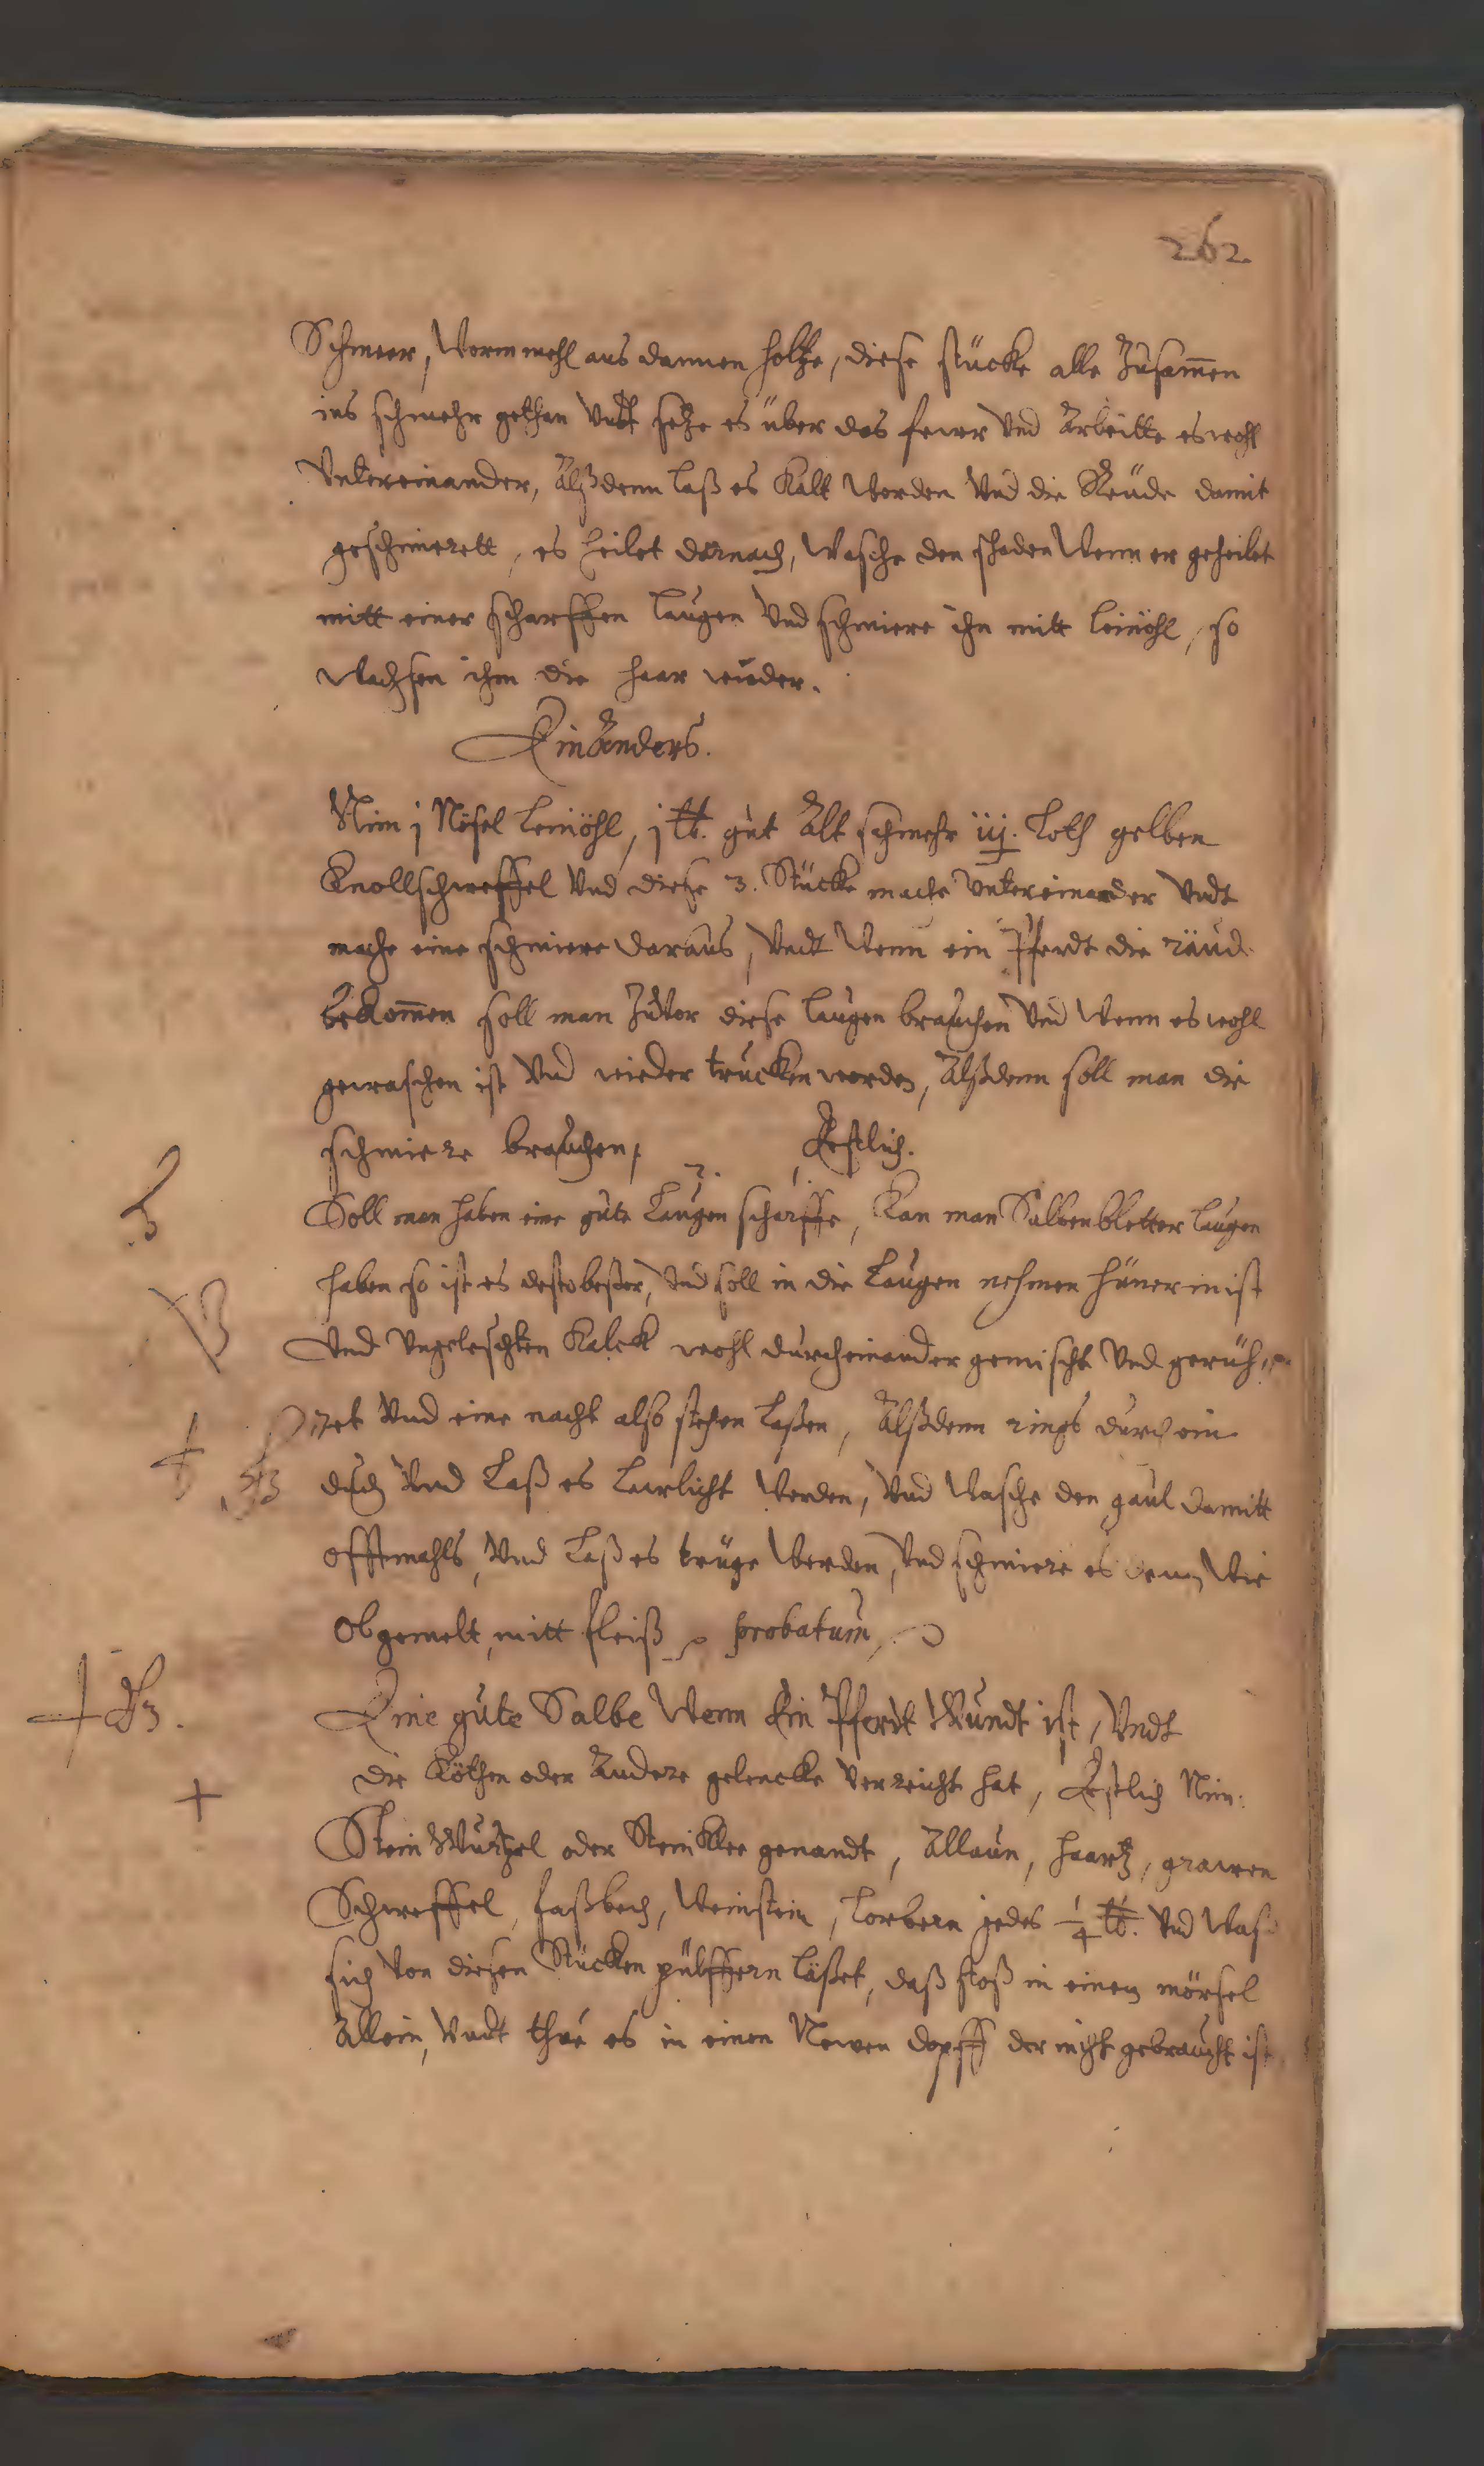 262.
Schmeer, Wormmehl aus dannen holtze, diese stücke alle Zusam̄en
ins schmehr gethan Vndt setze es über das fewer Vnd Arbeitte es wohl
Vntereinander, Alßdenn laß es Kalt Werden Vnd die Reüde damit
geschmierett, es heilet darnach, Wasche den schaden Wenn er geheilet
mitt einer scharffen laugen Vnd schmiere ihn mitt leinöhl, so
Wachsen ihm die haar wieder.
Ein Anders.
Nim j Nösel leinöhl, j ℔. gut Alt schmehr iij. Loth gelben
Knollschweffel Vnd diese 3. Stücke mache Vntereinander Vndt
mache eine schmiere daraus, Vndt Wenn ein Pferdt die räud
bekom̄en soll man Zuvor diese laugen brauchen Vnd Wenn es wohl
gewaschen ist Vnd wieder trucken worden, Alßdenn soll man die
schmiere brauchen, Erstlich.
Soll man haben eine gute Laugen scharffe, Kan man Salbenbletter laugen
haben so ist es desto beßer, Vnd soll in die Laugen nehmen hünermist
Vnd Vngeleschten Kalck wohl durcheinander gemischt Vnd gerüh
ret Vnd eine nacht also stehen laßen, Alßdenn rings durch ein
duch Vnd Laß es Lawlicht Werden, Vnd Wasche den gaul damitt
offtmahls, Vnd Laß es trüge Werden, Vnd schmiere es denn Wie
obgemelt, mitt fleiß probatum
Eine gute Salbe Wenn Ein Pferdt Wundt ist, Vndt
die Köthen oder Andere gelencke Verreicht hat, Erstlich Nim:
Stein Wurtzel oder SteinKlee genandt, Allaun, haartz, grawen
Schweffel, faßbech, Weinstein, Lorbern jedes 1/4 ℔. Vnd Waß
sich Von diesen Stücken pülffern läßet, daß stoß in einem mörsel
Allein, Vndt thue es in einen Newen dopff der nicht gebraucht ist